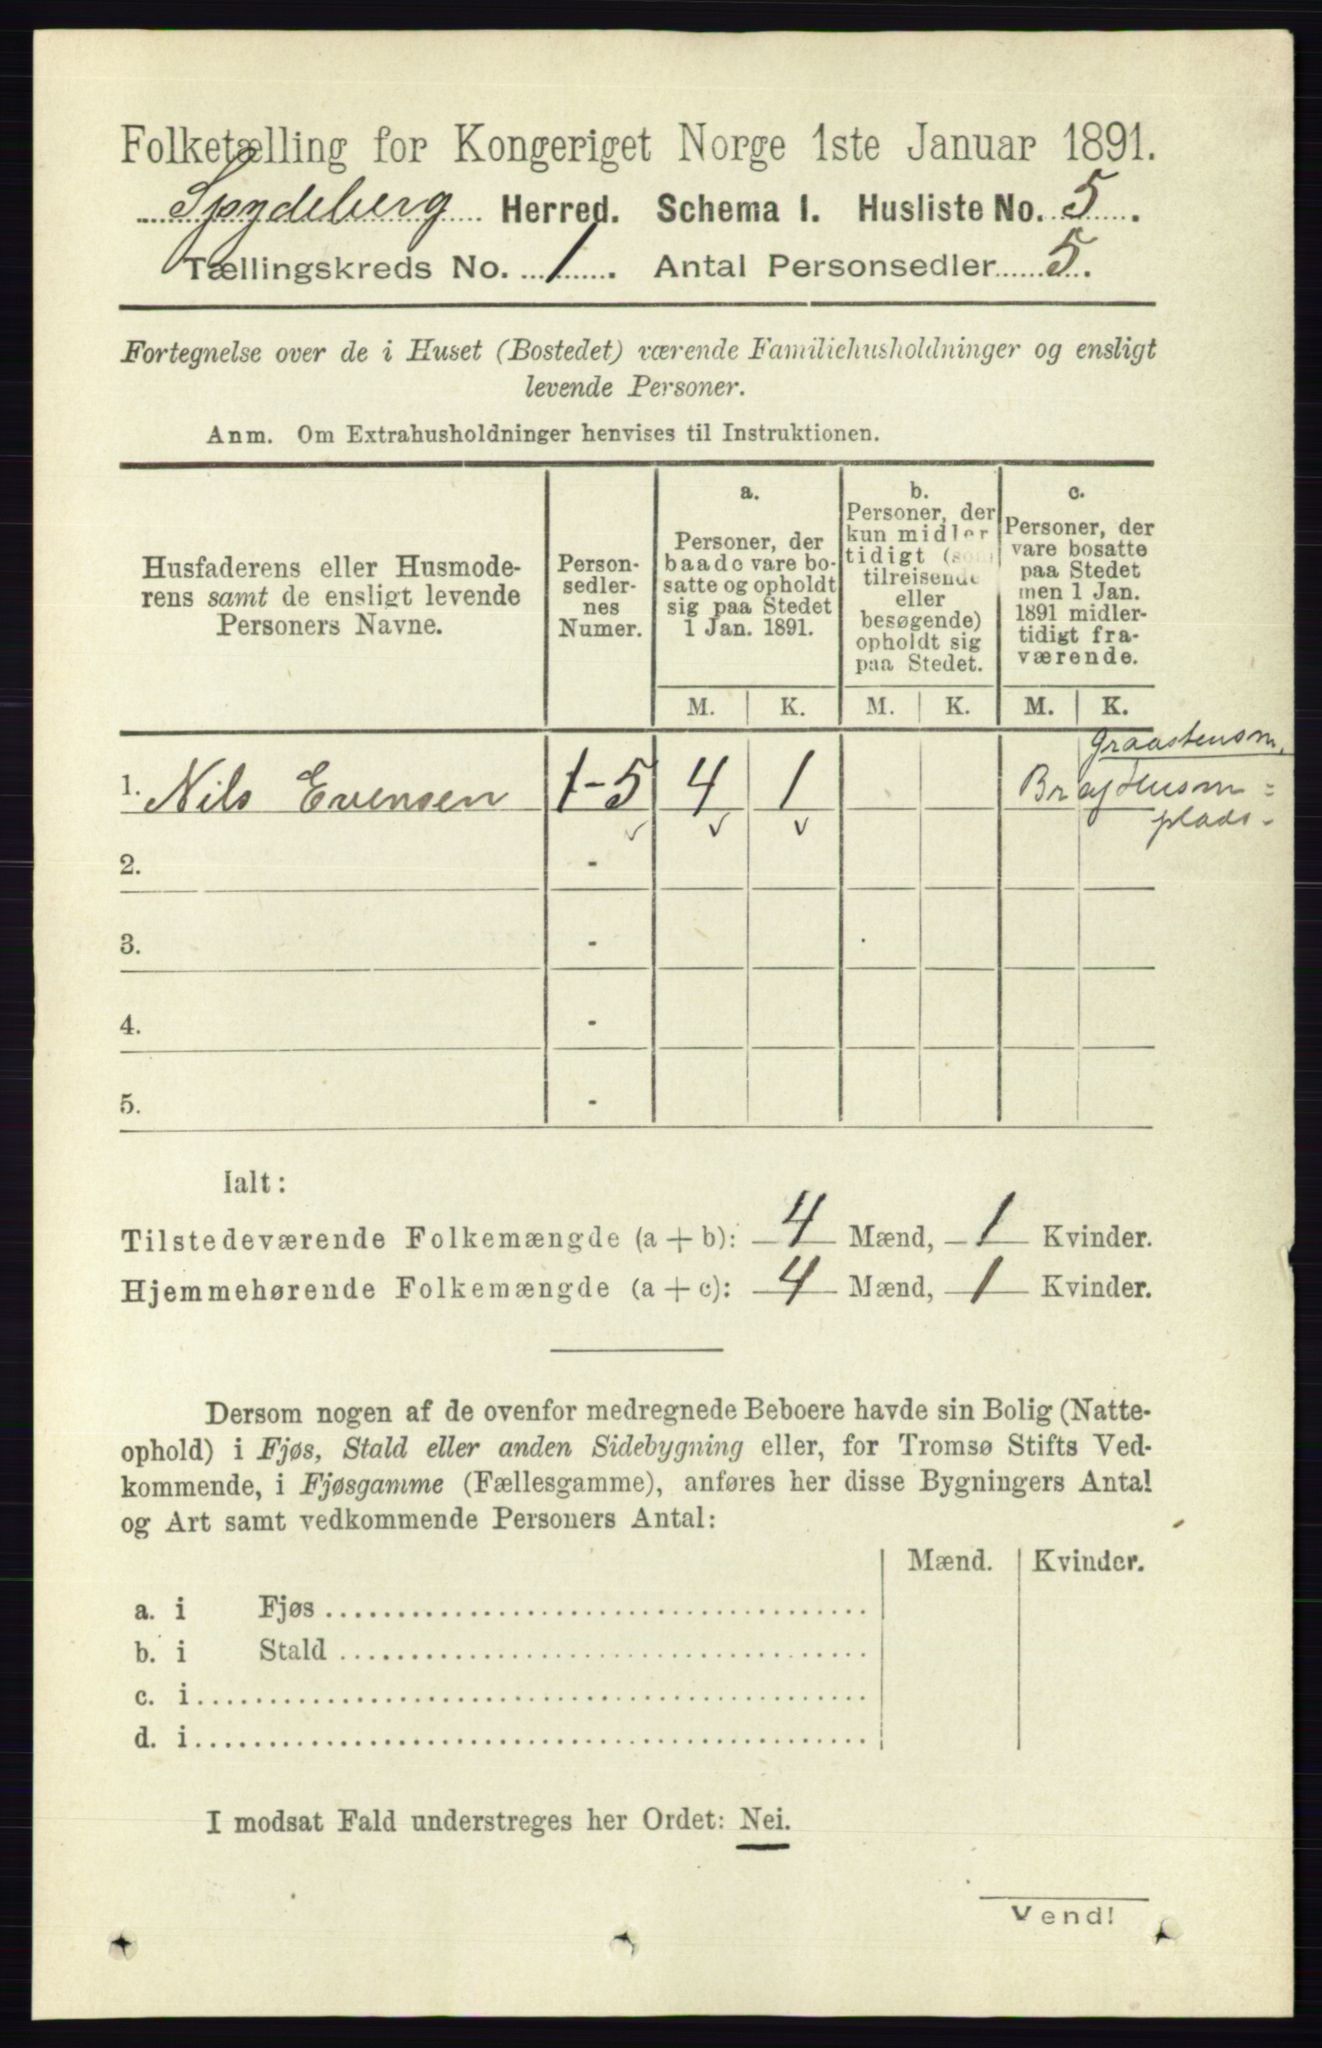 Folketælling for Kongeriget Norge 1ste Januar 1891.
Spydeberg Herred. Schema I. Husliste No. 5.
Tællingskreds No. 1. Antal Personsedler 5.
Fortegnelse over de i Huset (Bostedet) værende Familiehusholdninger og ensligt
levende Personer.
Anm. Om Extrahusholdninger henvises til Instruktionen.
Husfaderens eller Husmode-
rens samt de ensligt levende
Personers Navne.
Person-
sedler-
nes
Numer.
a.
Personer, der
baade vare bo-
satte og opholdt
sig paa Stedet
1 Jan. 1891.
b.
Personer, der
kun midler
tidigt (som
tilreisende
eller
besøgende)
opholdt sig
paa Stedet.
c.
Personer, der
vare bosatte
paa Stedet
men 1 Jan.
1891 midler-
tidigt fra-
værende.
M. K. M. K. M. K.
Graastensm.
1. Nils Evensen 1-5 4 1 Husm=
plads.
2. -
3. -
4. -
5. -
Ialt:
Tilstedeværende Folkemængde (a + b): 4 Mænd, 1 Kvinder.
Hjemmehørende Folkemængde (a + c): 4 Mænd, 1 Kvinder.
Dersom nogen af de ovenfor medregnede Beboere havde sin Bolig (Natte-
ophold) i Fjøs, Stald eller anden Sidebygning eller, for Tromsø Stifts Ved-
kommende, i Fjøsgamme (Fællesgamme), anføres her disse Bygningers Antal
og Art samt vedkommende Personers Antal:
Mænd. Kvinder.
a. i Fjøs
b. i Stald
c. i
d. i
I modsat Fald understreges her Ordet: Nei.
Vend!